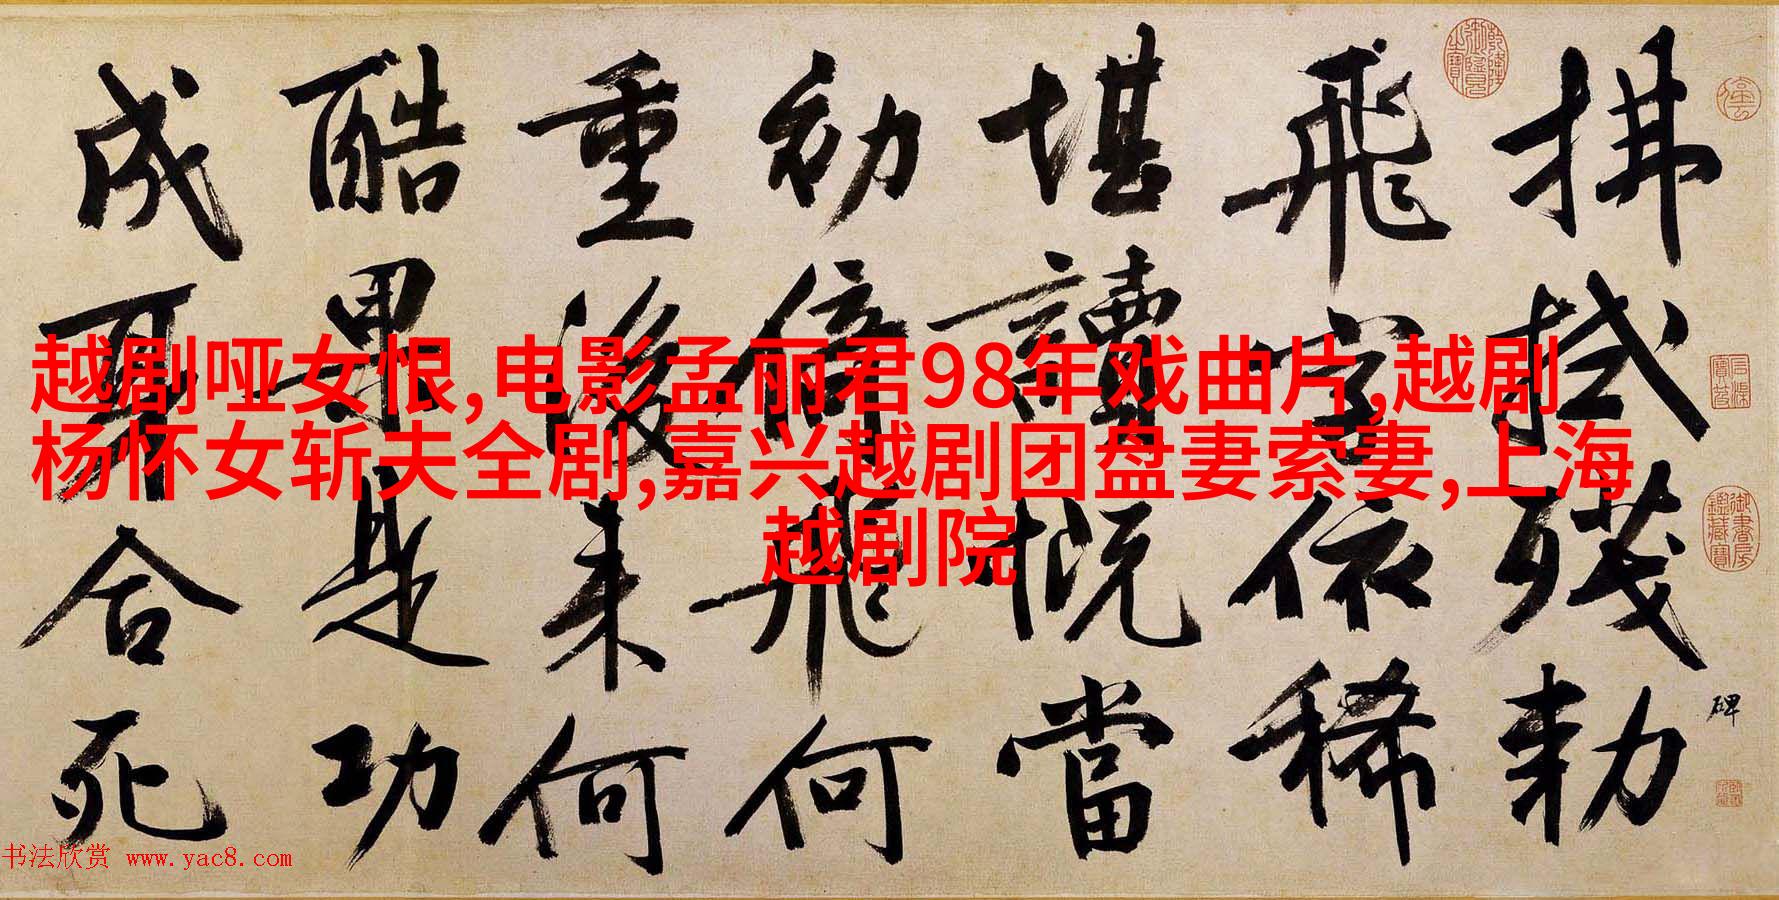 拂拭殘
勅
碑
飛字依
稀
堪讀慨
當
初倚飛
何
重後來
何
酷果是
功
成身合
死
越剧哑女恨,电影孟丽君98年戏曲片,越剧
杨怀女斩夫全剧,嘉兴越剧团盘妻索妻,上海
越剧院
书法欣赏 www.yac8.com